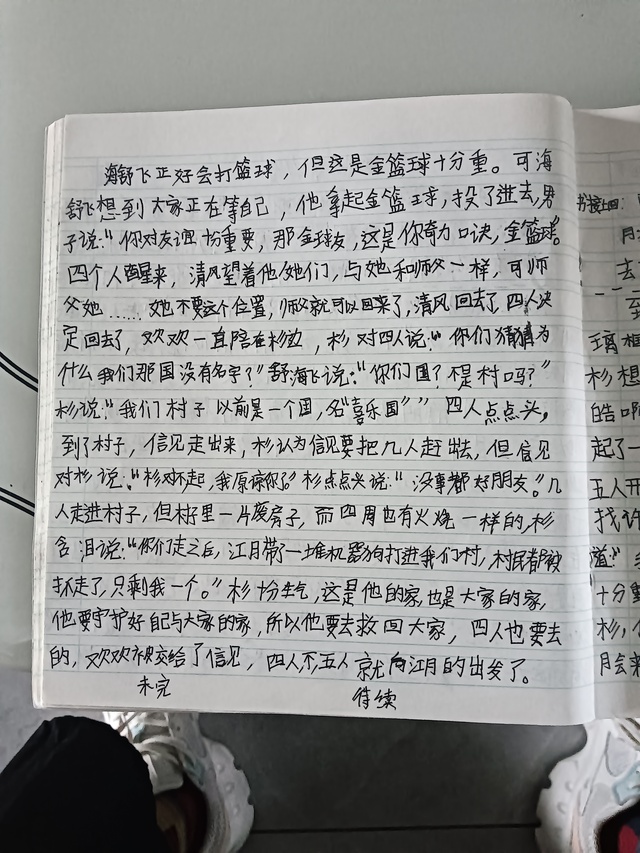 海舒飞正好会打篮球，但这是金篮球十分重。可海
舒飞想到大家正在等自己，他拿起金篮球，投了进去，男
子说："你对友谊十份重要，那金球友，这是你奇力口诀，金篮球。
四个人醒来，清风望着他她们，与她和师父一样，可师
父她……她不要这个位置，师父就可以回来了，清风回去了，四人决
定回去了，欢欢一直陪在杉边，杉对四人说："你们猜猜为
什么我们那国没有名字？"舒海飞说："你们国？不是村吗？"
杉说："我们村子以前是一个国，名"喜乐国""四人点点头，
到了村子，信见走出来，杉认为信见要把几人赶出去，但信见
对杉说："杉对不起，我原谅你了"杉点点头说："没事都好朋友。"几
人走进村子，但村里一片废房子，而四周也有火烧一样的，杉
含泪说："你们走之后，江月带了一堆机器狗打进我们村，村民都被
抓走了，只剩我一个。"杉十份生气，这是他的家，也是大家的家，
他要守护好自己与大家的家，所以他要去救回大家，四人也要去
的，欢欢被交给了信见，四人不五人就向江月的出发了。
未完 待续
书接上回：
月
去
到
璃框
杉想
皓啊
起了一
五人开
找许
道："
十分重
杉，
月会来